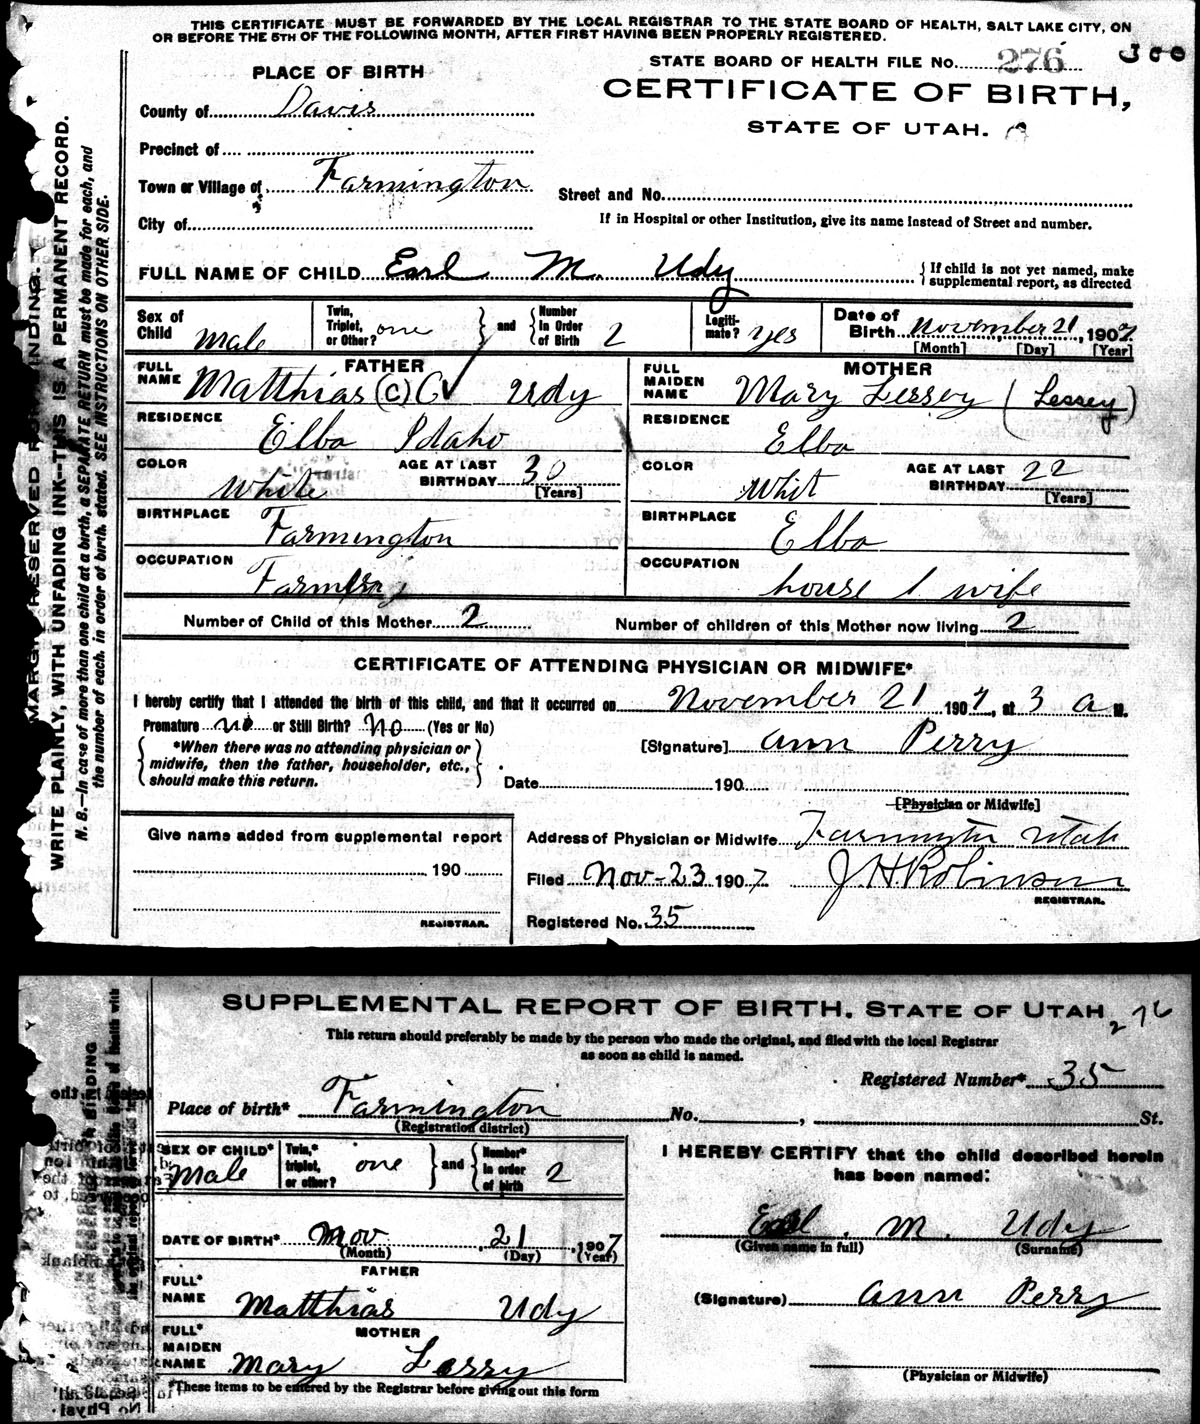 THIS CERTIFICATE MUST BE FORWARDED BY THE LOCAL REGISTRAR TO THE STATE BOARD OF HEALTH, SALT LAKE CITY, ON
OR BEFORE THE 5TH OF THE FOLLOWING MONTH, AFTER FIRST HAVING BEEN PROPERLY REGISTERED.
STATE BOARD OF HEALTH FILE No. 276
300
PLACE OF BIRTH
CERTIFICATE OF BIRTH,
STATE OF UTAH.
County of Davis
Precinct of
Town or Village of Farmington
Street and No.
City of
If in Hospital or other Institution, give its name instead of Street and number.
FULL NAME OF CHILD Earl M. Udy
If child is not yet named, make
supplemental report, as directed
Sex of Child Male
Twin, Triplet, or Other? one
and
Number in Order of Birth 2
Legiti-mate? yes
Date of Birth November 21, 1907
[Month] [Day] [Year]
FATHER
FULL NAME Matthias (C) C Udy
MOTHER
FULL MAIDEN NAME Mary Lessey (Lessey)
RESIDENCE Elba Idaho
RESIDENCE Elba
COLOR White
AGE AT LAST BIRTHDAY 30
[Years]
COLOR Whit
AGE AT LAST BIRTHDAY 22
[Years]
BIRTHPLACE Farmington
BIRTHPLACE Elba
OCCUPATION
OCCUPATION house wife
Number of Child of this Mother 2
Number of children of this Mother now living 2
CERTIFICATE OF ATTENDING PHYSICIAN OR MIDWIFE*
I hereby certify that I attended the birth of this child, and that it occurred on November 21 1907, at 3 a M.
Premature no or Still Birth? No (Yes or No)
*When there was no attending physician or
midwife, then the father, householder, etc.,
should make this return.
[Signature] Ann Perry
Date 190
[Physician or Midwife]
Give name added from supplemental report
190
REGISTRAR.
Address of Physician or Midwife Farmington Utah
Filed Nov-23 1907
J. H. Robinson
REGISTRAR.
Registered No. 35
MARGIN RESERVED FOR BINDING.
WRITE PLAINLY, WITH UNFADING INK--THIS IS A PERMANENT RECORD.
N. B.--In case of more than one child at a birth, a SEPARATE RETURN must be made for each, and
the number of each, in order of birth, stated. SEE INSTRUCTIONS ON OTHER SIDE.
SUPPLEMENTAL REPORT OF BIRTH, STATE OF UTAH
276
This return should preferably be made by the person who made the original, and filed with the local Registrar
as soon as child is named.
Registered Number* 35
Place of birth* Farmington No. , St.
(Registration district)
SEX OF CHILD* Male
Twin,* triplet, or other? one
and
Number* in order of birth 2
I HEREBY CERTIFY that the child described herein
has been named:
Earl M. Udy
(Given name in full) (Surname)
DATE OF BIRTH* Nov 21, 1907
(Month) (Day) (Year)
FATHER
FULL* NAME Matthias Udy
(Signature) Ann Perry
MOTHER
FULL* MAIDEN NAME Mary Lessy
(Physician or Midwife)
*These items to be entered by the Registrar before giving out this form